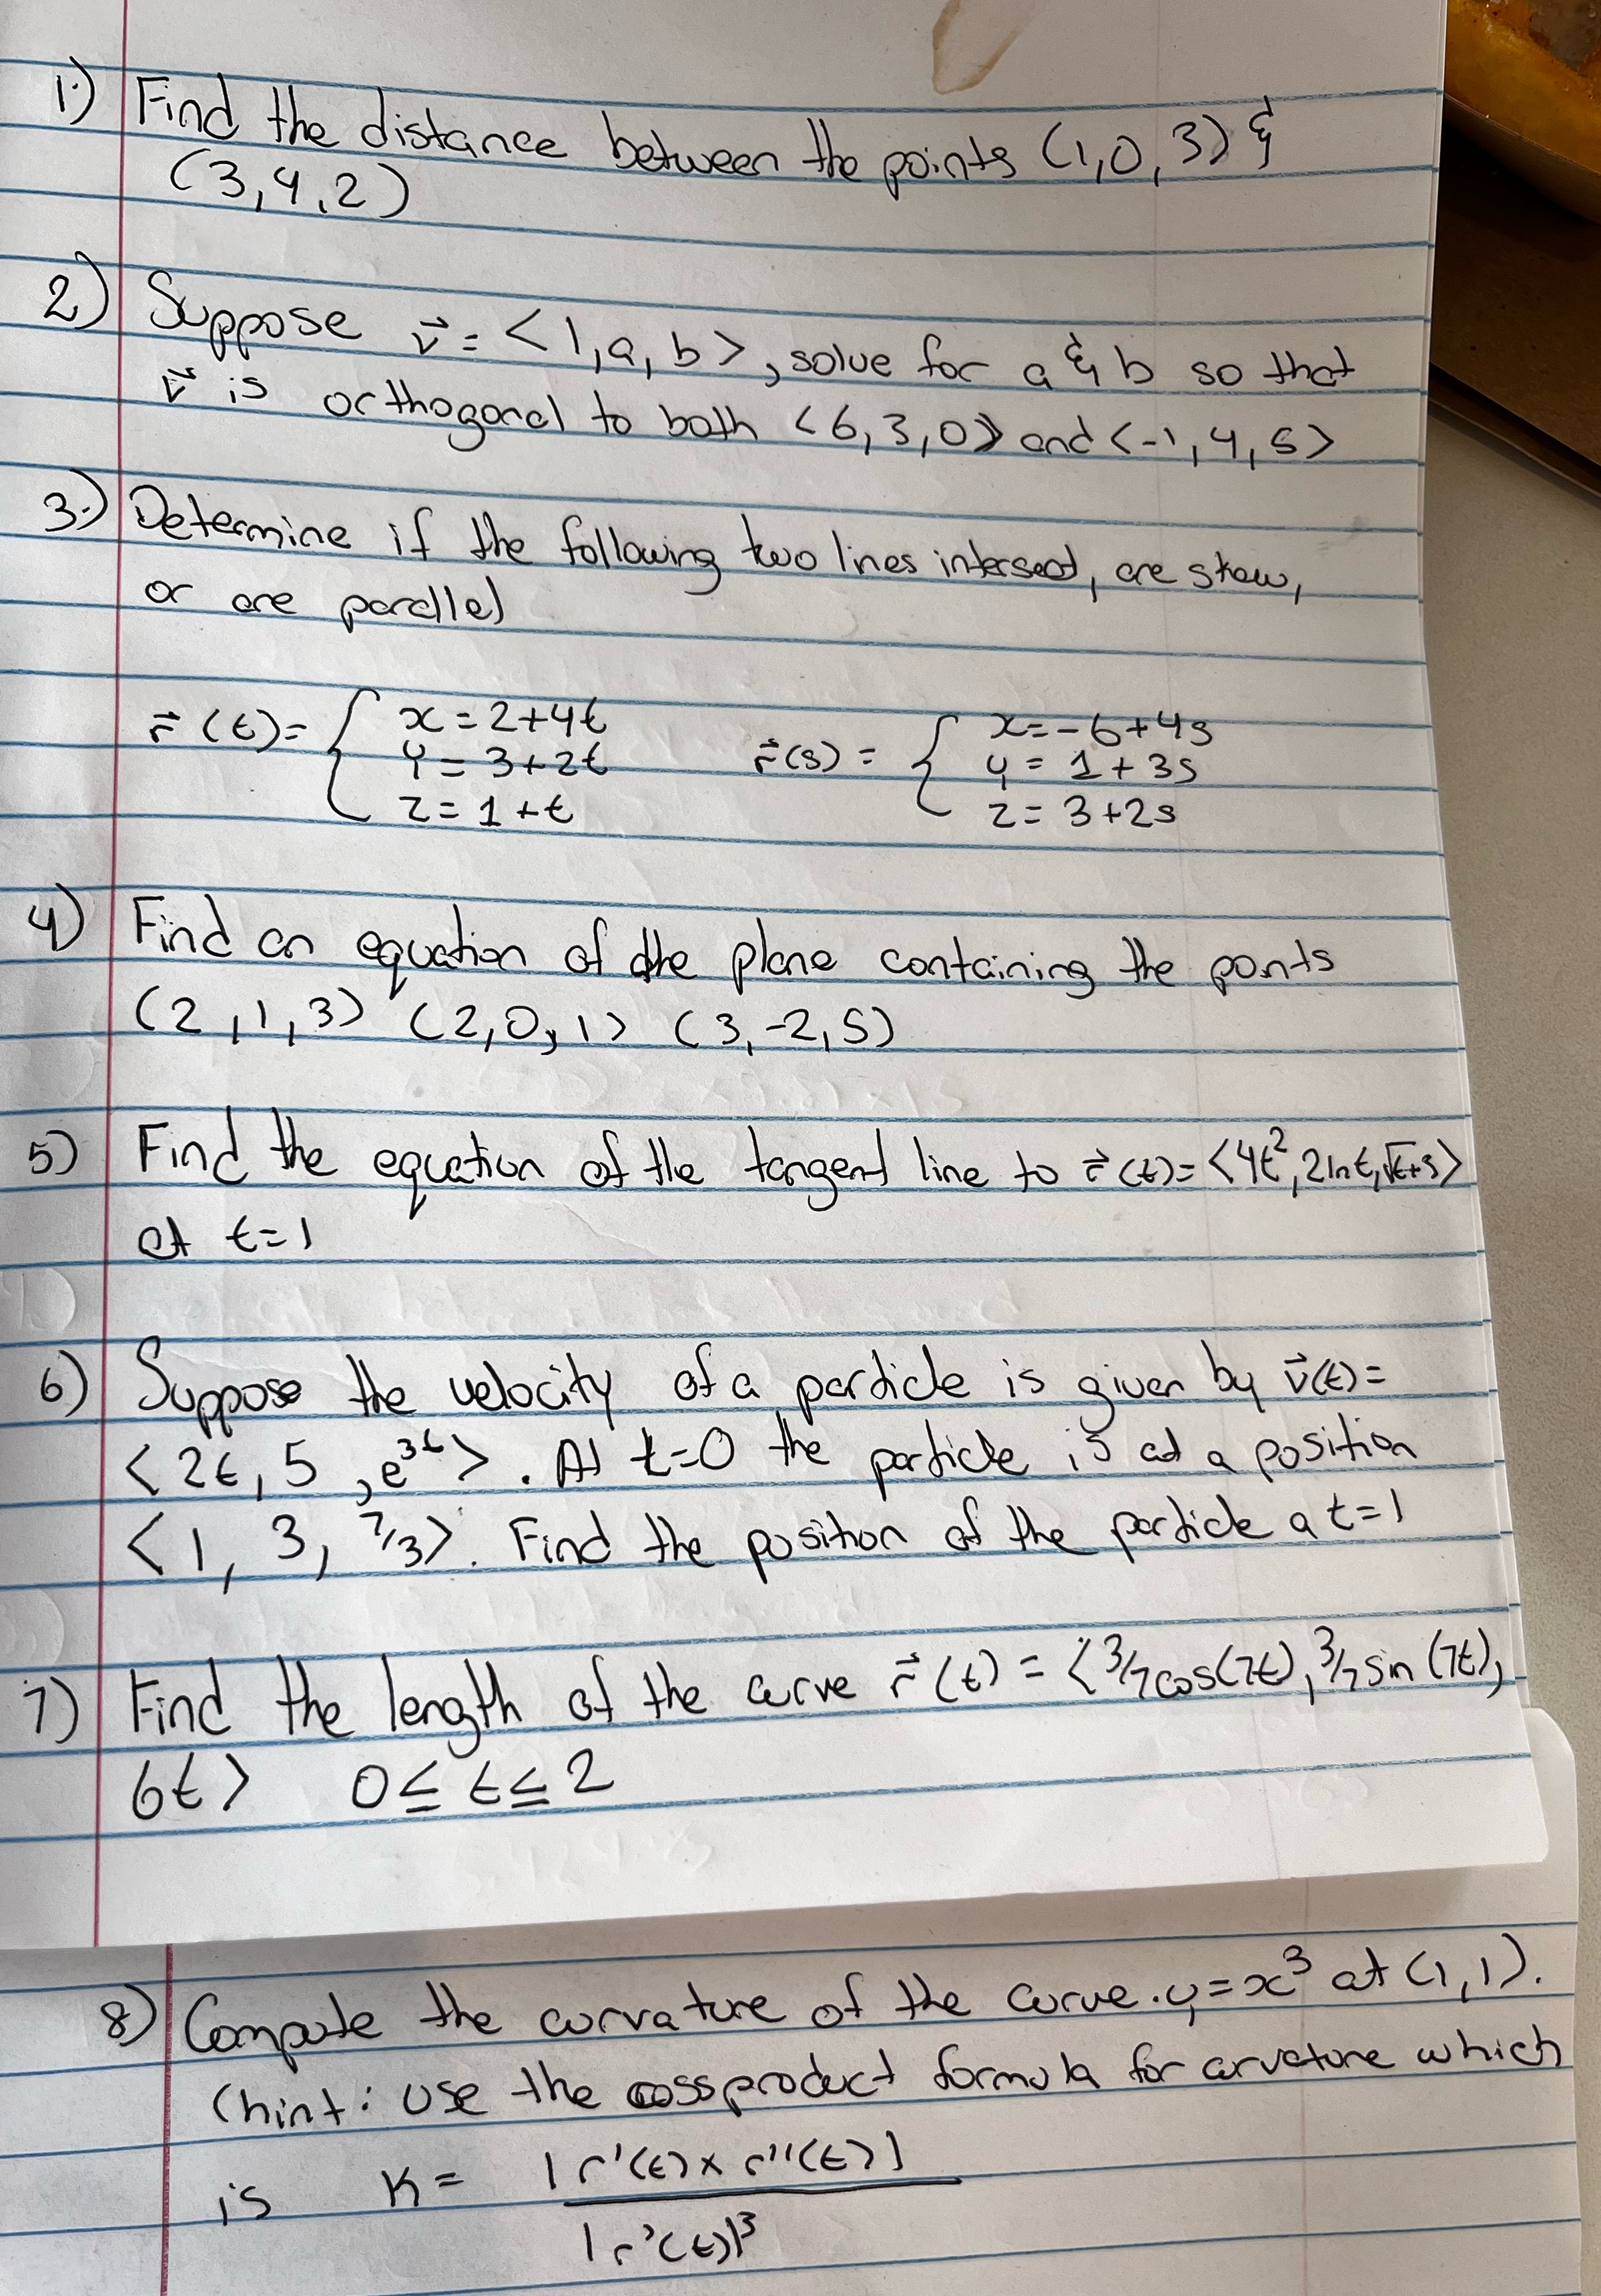 1.) Find the distance between the points (1,0,3) &
(3,4,2)
2) Suppose v⃗ = <1,a,b>, solve for a & b so that
v⃗ is orthogonal to both <6,3,0> and <-1,4,5>
3.) Determine if the following two lines intersect, are skew,
or are parallel
r⃗(t)= { x=2+4t r⃗(s) = { x=-6+4s
y=3+2t y= 1+3s
z=1+t z= 3+2s
4) Find an equation of the plane containing the ponts
(2,1,3) (2,0,1) (3,-2,5)
5) Find the equation of the tangent line to r⃗(t)=<4t²,2lnt,√t+3>
at t=1
6) Suppose the velocity of a particle is given by v⃗(t)=
<2t, 5, e³ᵗ>. At t=0 the particle is at a position
<1, 3, 7/3>. Find the position of the particle at t=1
7) Find the length of the curve r⃗(t) = <3/7cos(7t), 3/7sin(7t),
6t> 0≤t≤2
8) Compute the curvature of the curve. y=x³ at (1,1).
(hint: Use the crossproduct formula for curvature which
is K= |r'(t)×r''(t)|
|r'(t)|³